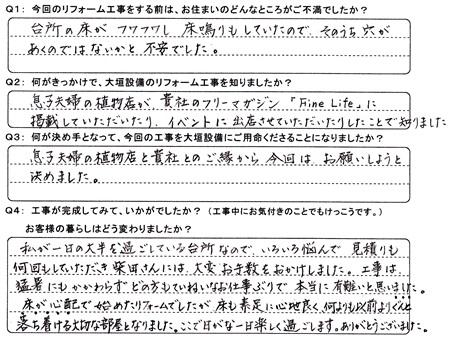 Q1: 今回のリフォーム工事をする前は、お住まいのどんなところがご不満でしたか?
台所の床が フワフワし 床鳴りもしていたので そのうち穴が
あくのではないかと 不安でした。
Q2: 何がきっかけで、大垣設備のリフォーム工事を知りましたか?
息子夫婦の植物店が、貴社のフリーマガジン「Fine Life」に
掲載していただいたり、イベントに出店させていただいたりしたことで知りました
Q3: 何が決め手となって、今回の工事を大垣設備にご用命くださることになりましたか?
息子夫婦の植物店と貴社とのご縁から 今回は お願いしようと
決めました。
Q4: 工事が完成してみて、いかがでしたか? (工事中にお気付きのことでもけっこうです。)
お客様の暮らしはどう変わりましたか?
私が一日の大半を過ごしている台所なので、いろいろ悩んで 見積りも
何回もしていただき 柴田さんには 大変お手数をおかけしました。工事は
猛暑にもかかわらず どの方もていねいなお仕事ぶりで 本当に有難いと思いました。
床が心配で 始めたリフォームでしたが 床も素足に心地良く 何よりも以前よりぐんと
落ち着ける大切な部屋となりました。ここで日がな一日楽しく過ごします。ありがとうございました。